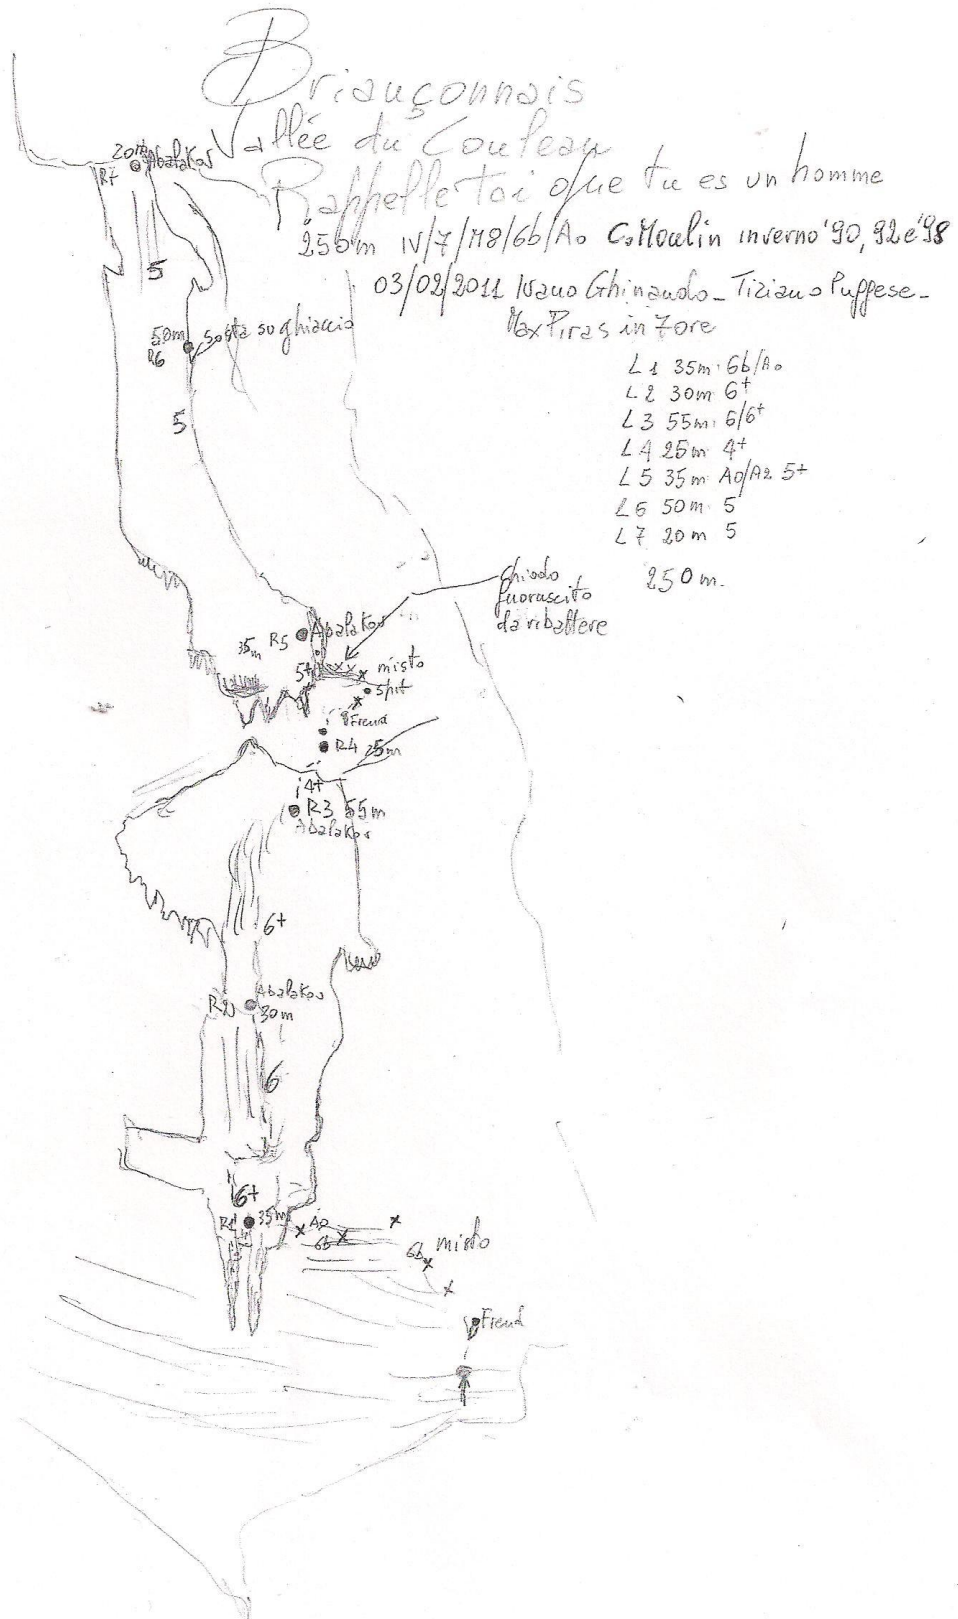 Briançonnais
Vallée du Couleau
Rappelle toi que tu es un homme
250m IV/7/M8/6b/A0 C.Moulin inverno '90, 92 e '98
03/02/2011 Ivano Ghirando - Tiziano Puggese -
Max Piras in 7 ore
L1 35m 6b/A0
L2 30m 6+
L3 55m 6/6+
L4 25m 4+
L5 35m A0/A2 5+
L6 50m 5
L7 20m 5
250m.
20m Abalakov
R7
5
50m sosta su ghiaccio
R6
5
chiodo
fuoruscito
da ribattere
35m R5 Abalakov
5+ misto
spit
Friend
R4 25m
4+
R3 55m
Abalakov
6+
R2 Abalakov
30m
6
6+
R1 35m A0
6b
6b misto
Friend